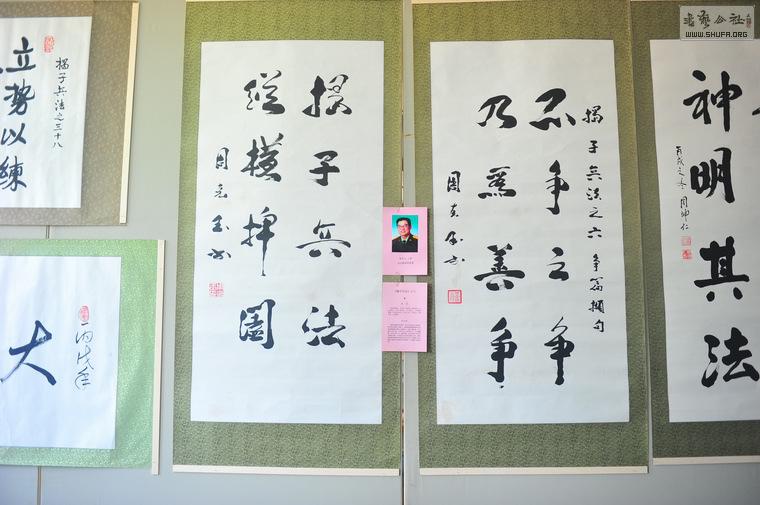 書藝公社
WWW.SHUFA.ORG
揭子兵法之三十八
立勢以練
大
丙戌年
揭子兵法
縱橫捭闔
周克玉书
揭子兵法之六 争篇撷句
不争之争
乃為善争
周克玉书
神明其法
丙戌之冬 周坤仁